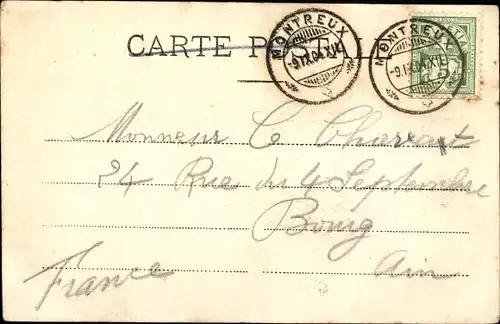 CARTE POSTALE
MONTREUX
-9.IX.04.XII
MONTREUX
-9.IX.04.XII
5
Monsieur C Charvet
24 Rue du 4 Septembre
Bourg
Ain
France